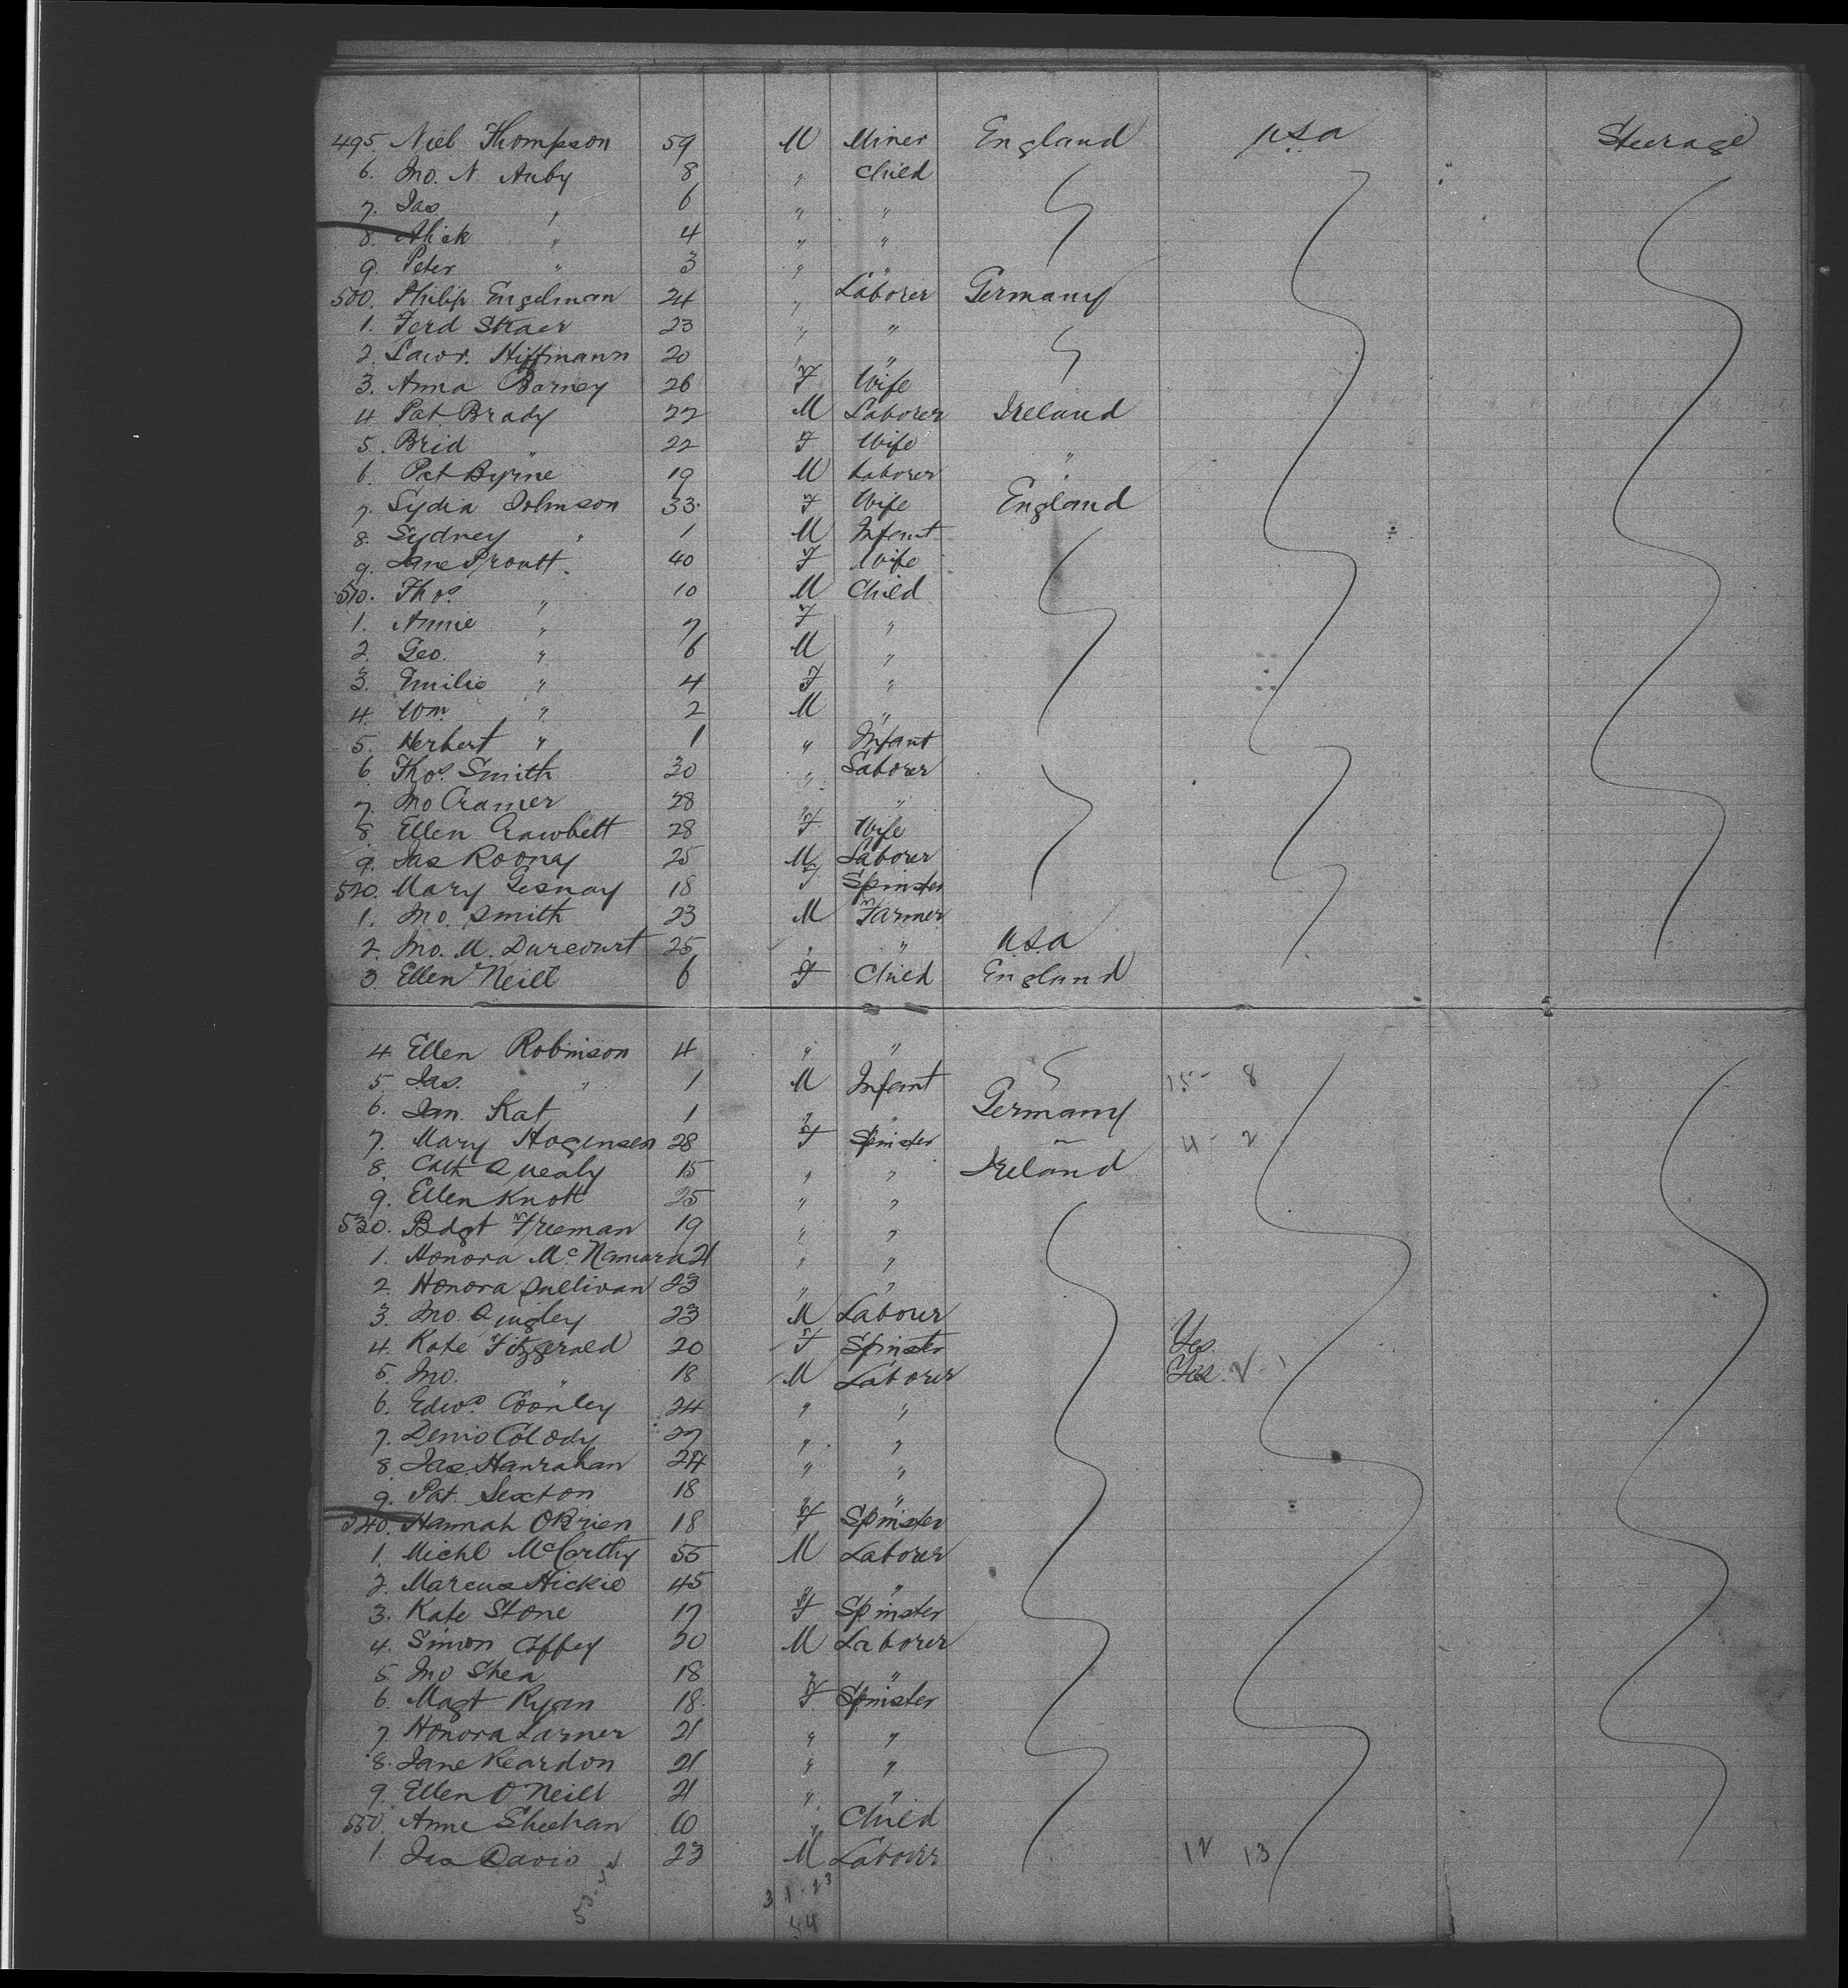 495. Nieb Thompson 59 M Miner England U.S.A Steerage
6. Jno. N. Auby 8 " Child
7. Jas " 6 " "
8. Alick " 4 " "
9. Peter " 3 " "
500. Philip Engelman 24 " Laborer Germany
1. Ferd Straer 23 " "
2. Lawr. Hiffmann 20 " "
3. Anna Barney 26 F Wife
4. Pat Brady 22 M Laborer Ireland
5. Brid " 22 F Wife "
6. Pat Byrne 19 M Laborer "
7. Lydia Johnson 33. F Wife England
8. Sydney " 1 M Infant
9. Jane Proutt. 40 F Wife
510. Thos. " 10 M Child
1. Annie " 7 F "
2. Geo. " 6 M "
3. Emilie " 4 F "
4. Wm. " 2 M "
5. Herbert " 1 " Infant
6. Thos. Smith 30 " Laborer
7. Jno Cramer 28 " "
8. Ellen Crawbett 28 F Wife
9. Jas Roony 25 M Laborer
520. Mary Gesnay 18 F Spinster
1. Jno. Smith 23 M Farmer
2. Jno. M. Durcourt 25 " " U.S.A
3. Ellen Neill 6 F Child England
4 Ellen Robinson 4 " "
5 Jas. " 1 M Infant 15 - 8
6. Jan. Kat 1 " " Germany
7. Mary Hogensen 28 F Spinster " 4 - 2
8. Cath Quealy 15 " " Ireland
9. Ellen Knott 25 " "
530. Bdgt Freeman 19 " "
1. Honora McNamara 21 " "
2. Honora Sullivan 23 " "
3. Jno. Quigley 23 M Laborer
4. Kate Fitzgerald 20 F Spinster Yes
5. Jno. " 18 M Laborer Yes. 2 - 1
6. Edwd. Coonley 24 " "
7. Denis Colody 27 " "
8. Jas. Hanrahan 24 " "
9. Pat. Sexton 18 " "
540. Hannah OBrien 18 F Spinster
1. Michl McCarthy 55 M Laborer
2. Marcus Hickie 45 " "
3. Kate Stone 17 F Spinster
4. Simon Coffey 20 M Laborer
5 Jno Shea 18 " "
6. Magt Ryan 18. F Spinster
7. Honora Larner 21 " "
8. Jane Reardon 21 " "
9. Ellen O'Neill 21 " "
550. Anne Sheehan 10 " Child
1. Jas Davis 23 M Laborer 12 13
53-4
31-23
54